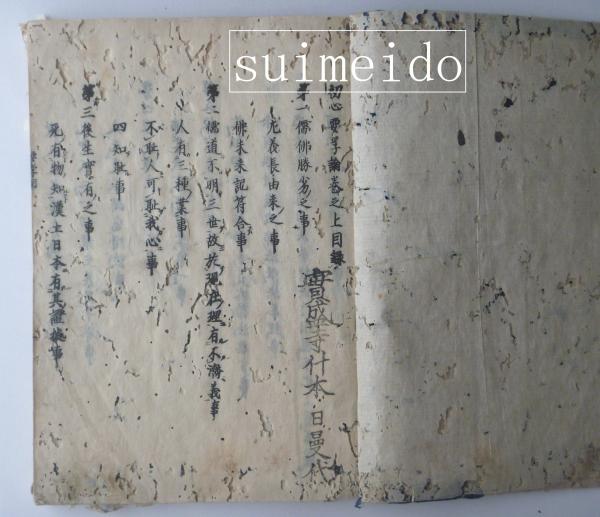 suimeido
初心要学論巻之上目録
寶盛寺什本 日曼代
第一儒佛勝劣之事
尤義長由来之事
佛未来記符合事
第二儒道不明三世故於現在理有不濟義事
人有三種業事
不耻人可耻我心事
四知耻事
第三後生實有之事
死有物知漢土日本有其證拠事